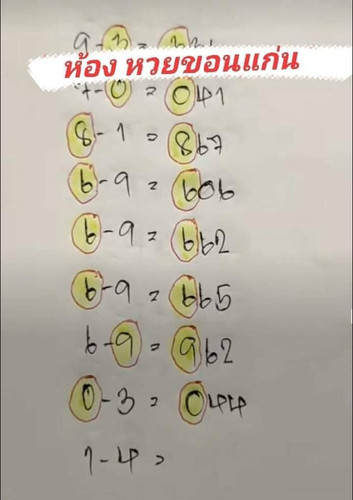 ห้อง หวยขอนแก่น
7-0 = 041
8-1 = 867
6-9 = 606
6-9 = 662
6-9 = 665
6-9 = 962
0-3 = 044
1-4 =